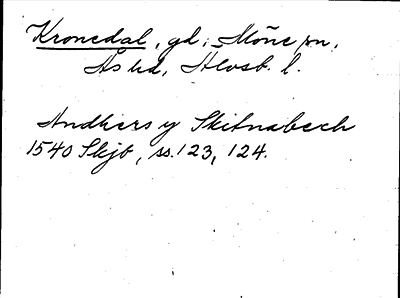 Kronedal, gd; Möne sn,
Ås hd, Älvsb. l.
Andhers y Skitnabech
1540 Skjb, ss. 123, 124.